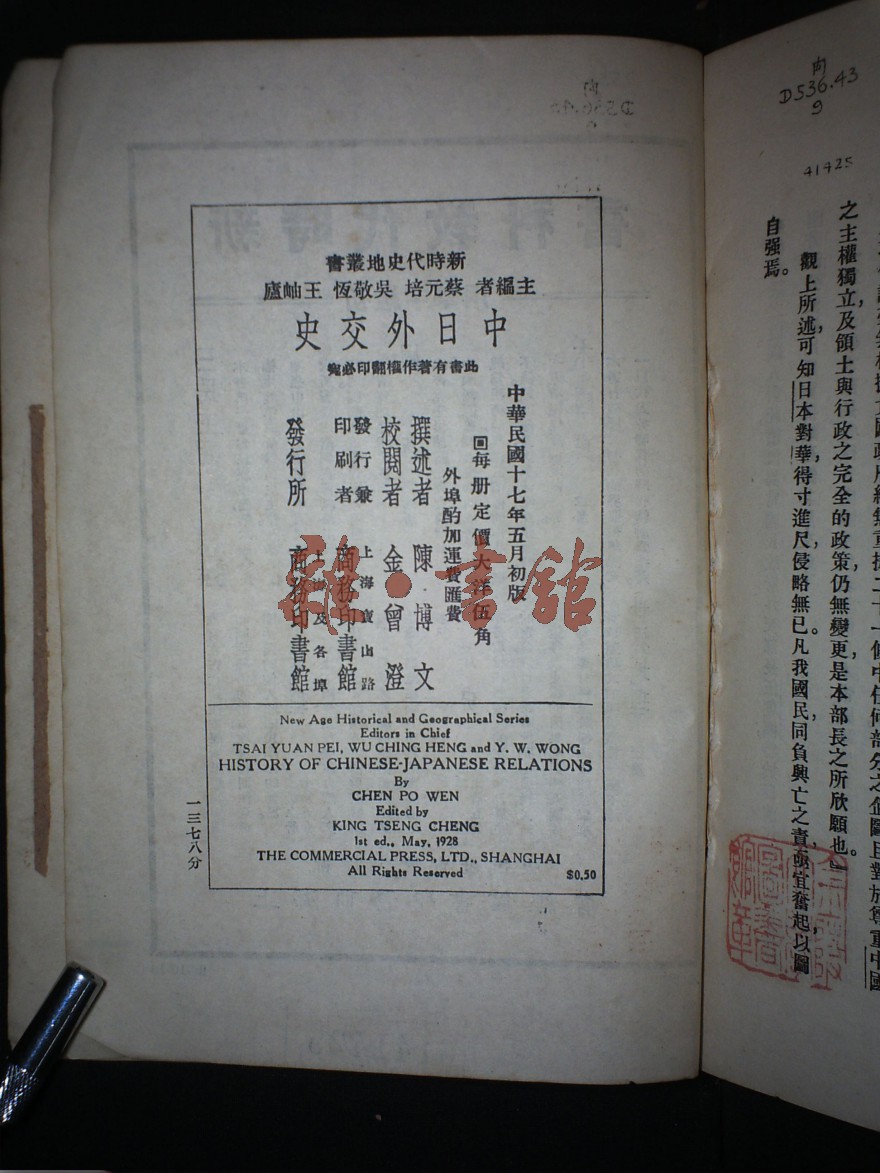 向
D536.43
9
41425
之主權獨立，及領土與行政之完全的政策，仍無變更，是本部長之所欣願也。』
觀上所述，可知日本對華，得寸進尺，侵略無已。凡我國民，同負興亡之責，亟宜奮起，以圖
自强焉。
新時代史地叢書
主編者 蔡元培 吳敬恆 王岫廬
中日外交史
此書有著作權翻印必究
中華民國十七年五月初版
每册定價大洋伍角
外埠酌加運費匯費
撰述者 陳博文
校閱者 金曾澄
發行兼印刷者 上海寶山路 商務印書館
發行所 上海及各埠 商務印書館
New Age Historical and Geographical Series
Editors in Chief
TSAI YUAN PEI, WU CHING HENG and Y. W. WONG
HISTORY OF CHINESE-JAPANESE RELATIONS
By
CHEN PO WEN
Edited by
KING TSENG CHENG
1st ed., May, 1928
THE COMMERCIAL PRESS, LTD., SHANGHAI
All Rights Reserved
$0.50
一三七八分